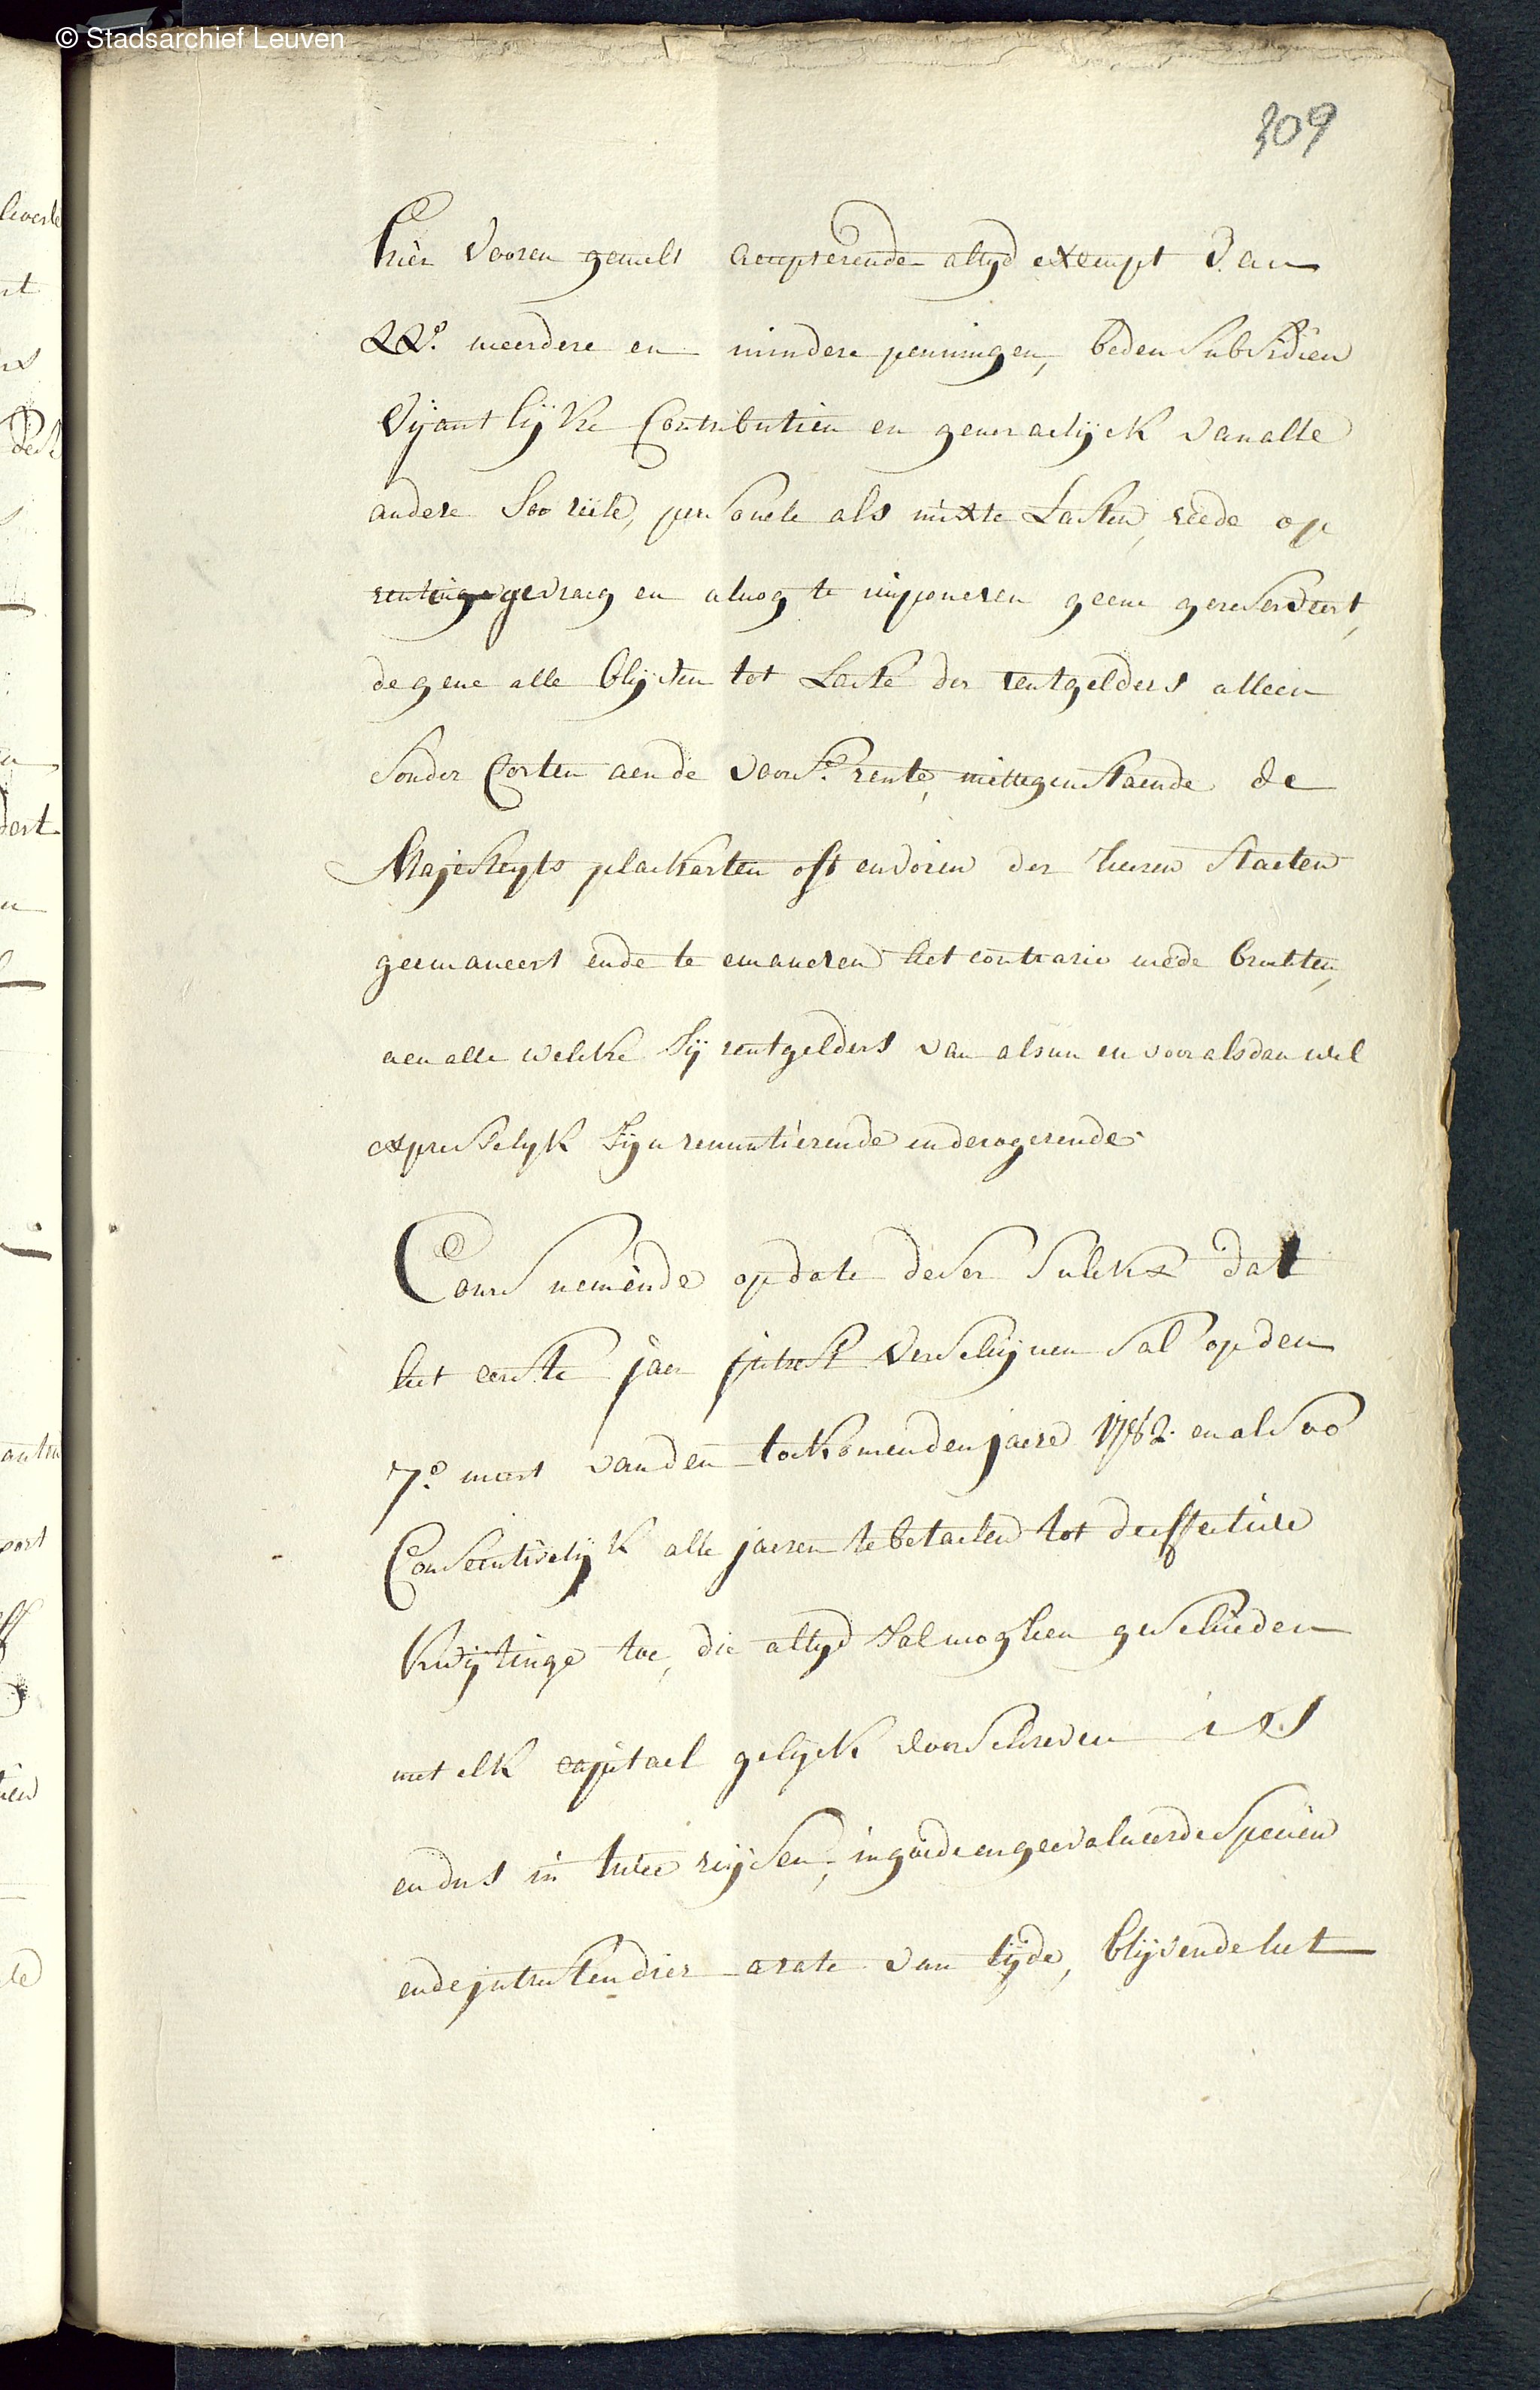 © Stadsarchief Leuven
309
hier vooren gemelt accepterende altyd exempt van
XXe. meerdere en mindere penningen, beden subsidien
Vijantlijke Contributien en generaelijck van alle
andere soo riële, personele als mixte Lasten, reede op
rentinge gedraeg en alnog te imponeren geene gereserveert,
de gene alle blijven tot Laste der rentgelders alleen
sonder Corten aen de voors.e rente, niettegenstaende de
Majesteyts plackaerten oft endoren der heeren Staeten
geemaneert ende te emaneren het contrarie mede brachten,
aen alle welcke sij rentgelders van als nu en voor alsdan wel
expresselyk sijn renuntierende en derogerende
Cours nemende op date deser sulckx dat
het eerste jaer intrest verschijnen sal op den
7.e meert van den toekomenden jaere 1782. en alsoo
Consecutivelijk alle jaeren te betaelen tot d'effective
kwijtinge toe, die altyd sal moghen geschieden
met elk capitael gelyck voorschreven is
en dus in twee reijsen, in goede en geevalueerde specien
ende intresten dier a rate van tijde, blijvende het